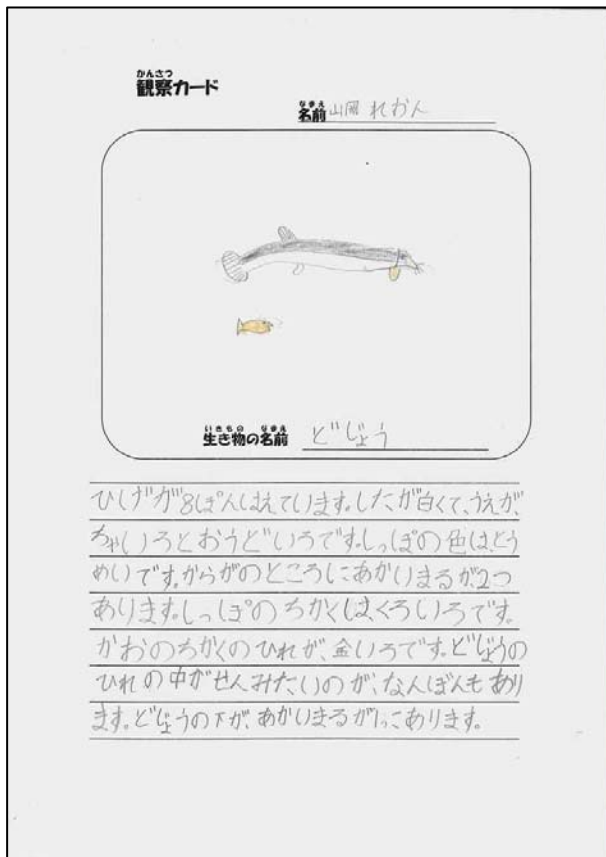 かんさつ
観察カード
なまえ
名前 山岡 れおん
いきもの なまえ
生き物の名前 どじょう
ひげが8ぽんはえています。したが白くて、うえが、
ちゃいろとおうどいろです。しっぽの色は、とう
めいです。からがのところにあかいまるが、2つ
あります。しっぽのちかくは、くろいろです。
かおのちかくのひれが、金いろです。どじょうの
ひれの中がせんみたいのが、なんぼんもあり
ます。どじょうの下が、あかいまるが1っこあります。